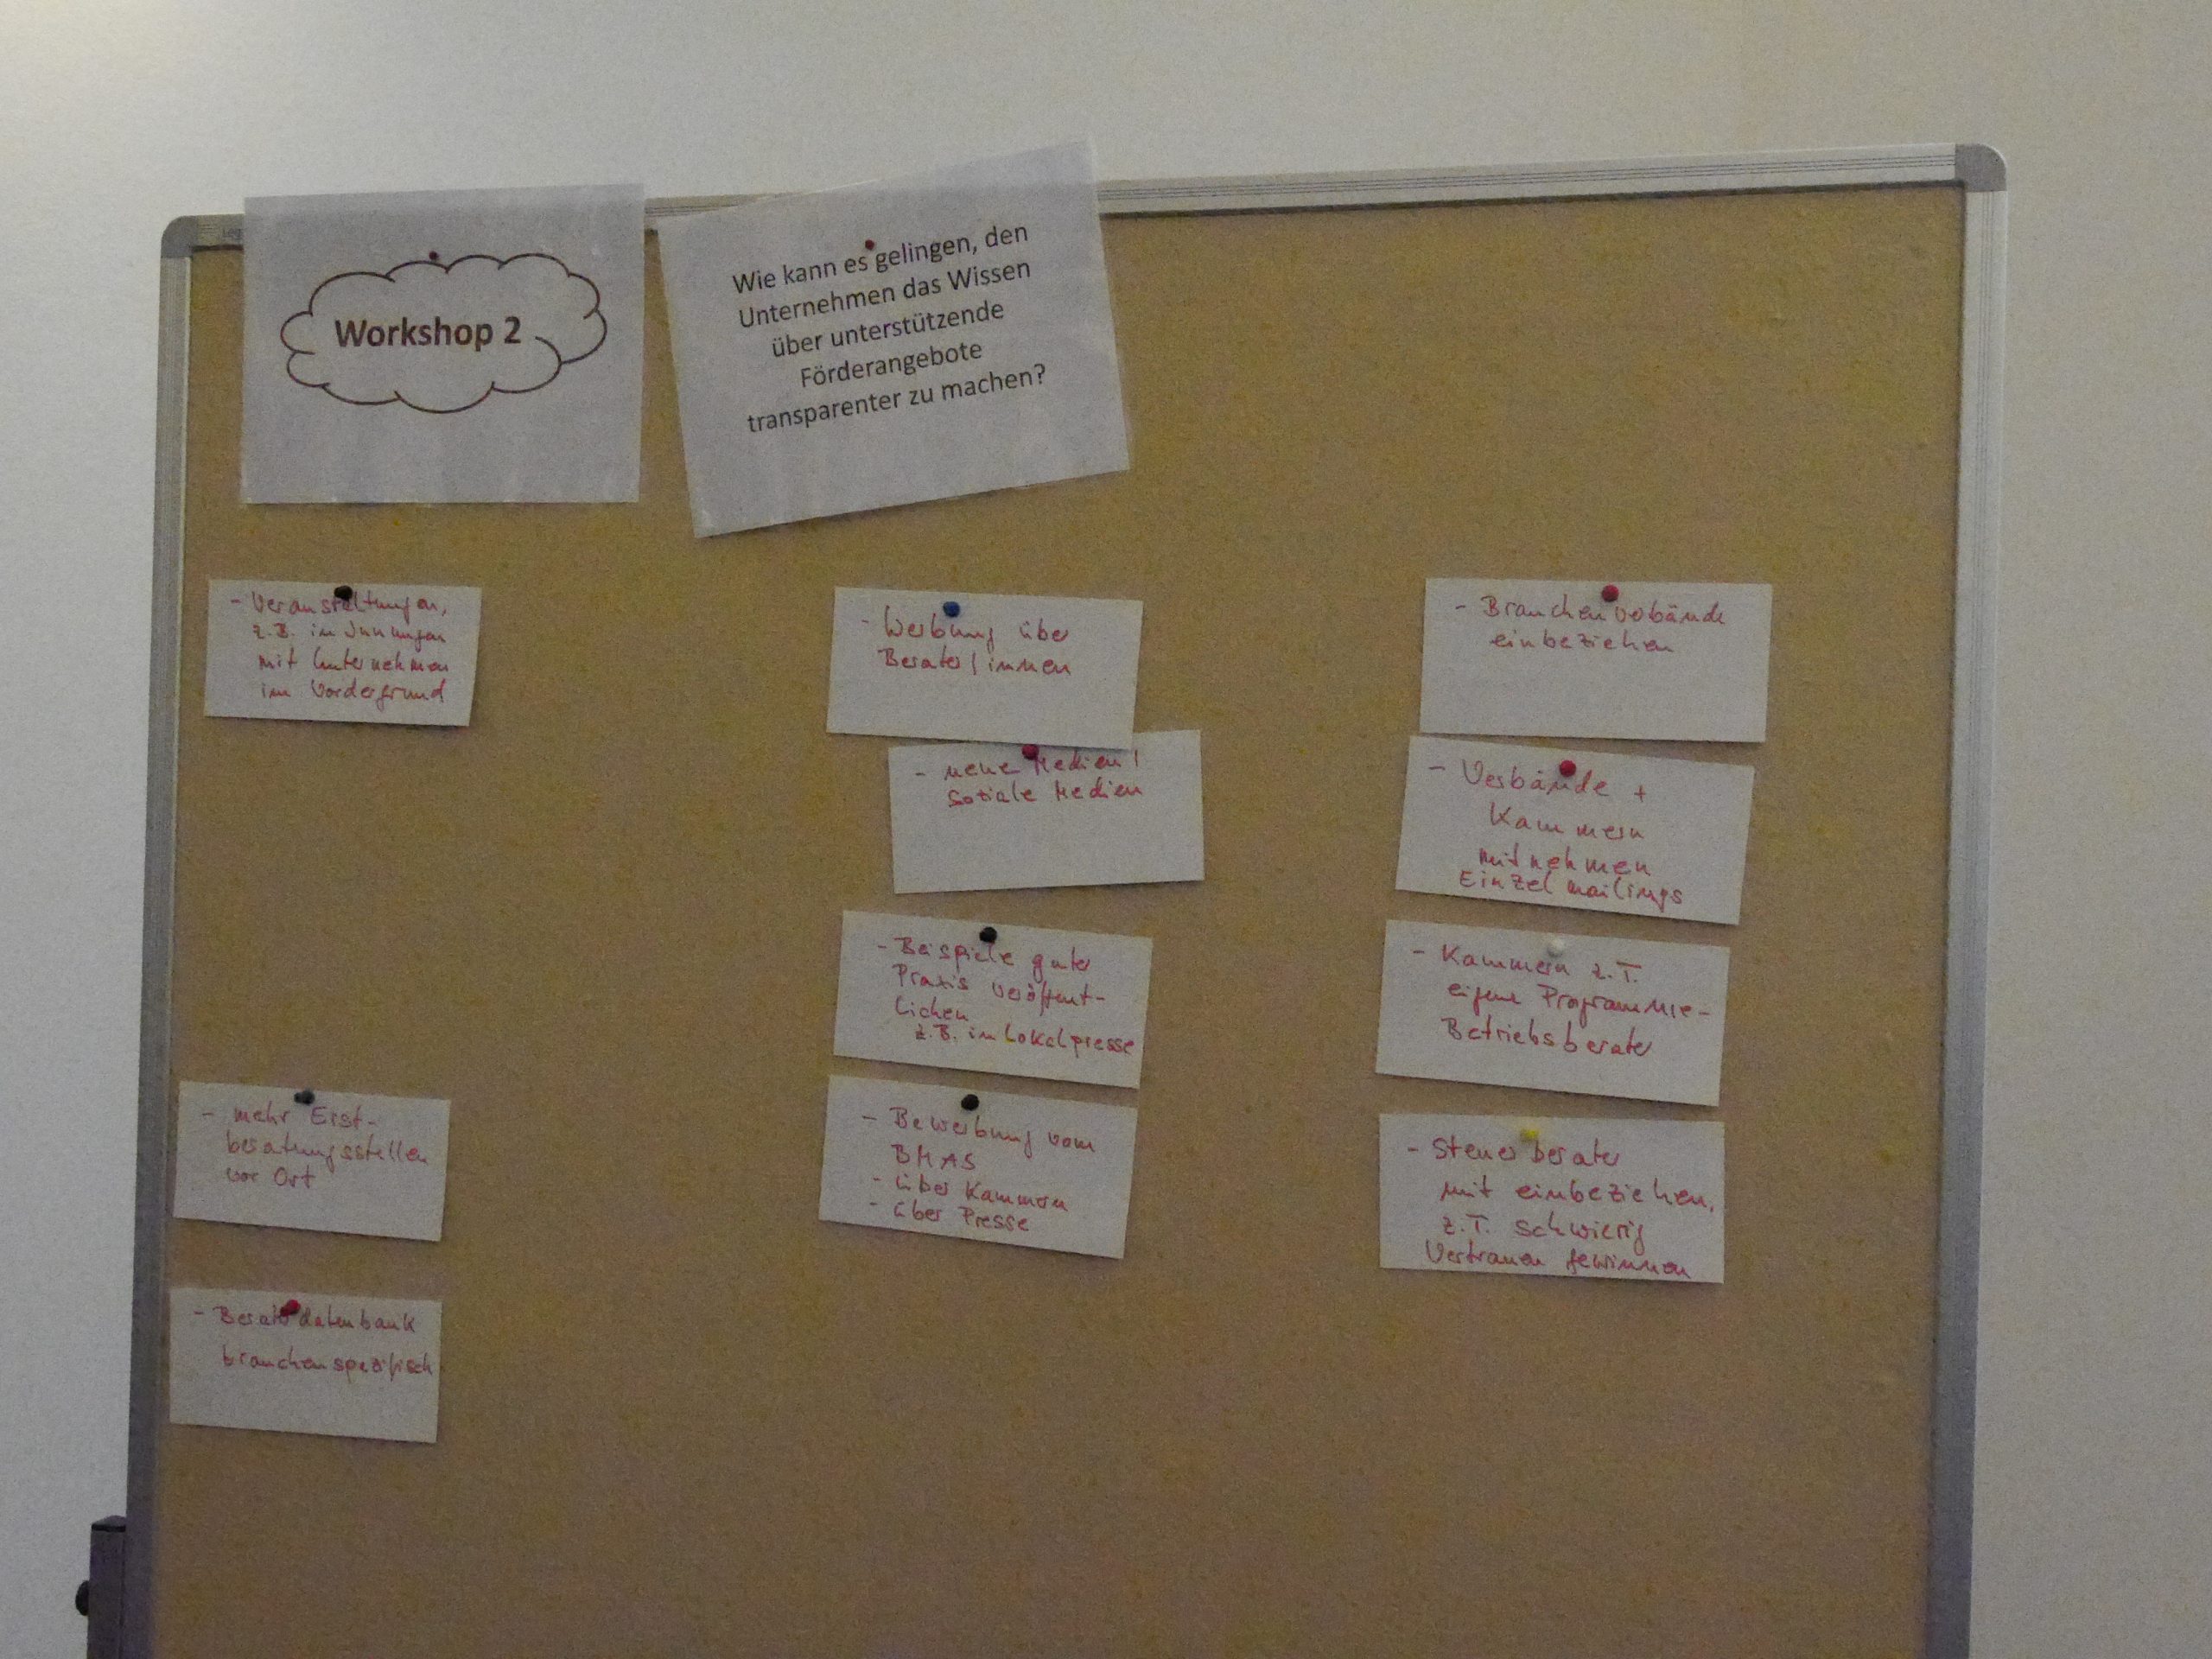 Workshop 2
Wie kann es gelingen, den
Unternehmen das Wissen
über unterstützende
Förderangebote
transparenter zu machen?
- Veranstaltungen,
z.B. in Innungen
mit Unternehmen
im Vordergrund
- mehr Erst-
beratungsstellen
vor Ort
- Beraterdatenbank
branchenspezifisch
- Werbung über
Berater/innen
- neue Medien/
Soziale Medien
- Beispiele guter
Praxis veröffent-
lichen
z.B. in Lokalpresse
- Bewerbung vom
BMAS
- über Kammern
- über Presse
- Branchenverbände
einbeziehen
- Verbände +
Kammern
mitnehmen
Einzelmailings
- Kammern z.T.
eigene Programme-
Betriebsberater
- Steuerberater
mit einbeziehen,
z.T. schwierig
Vertrauen gewinnen